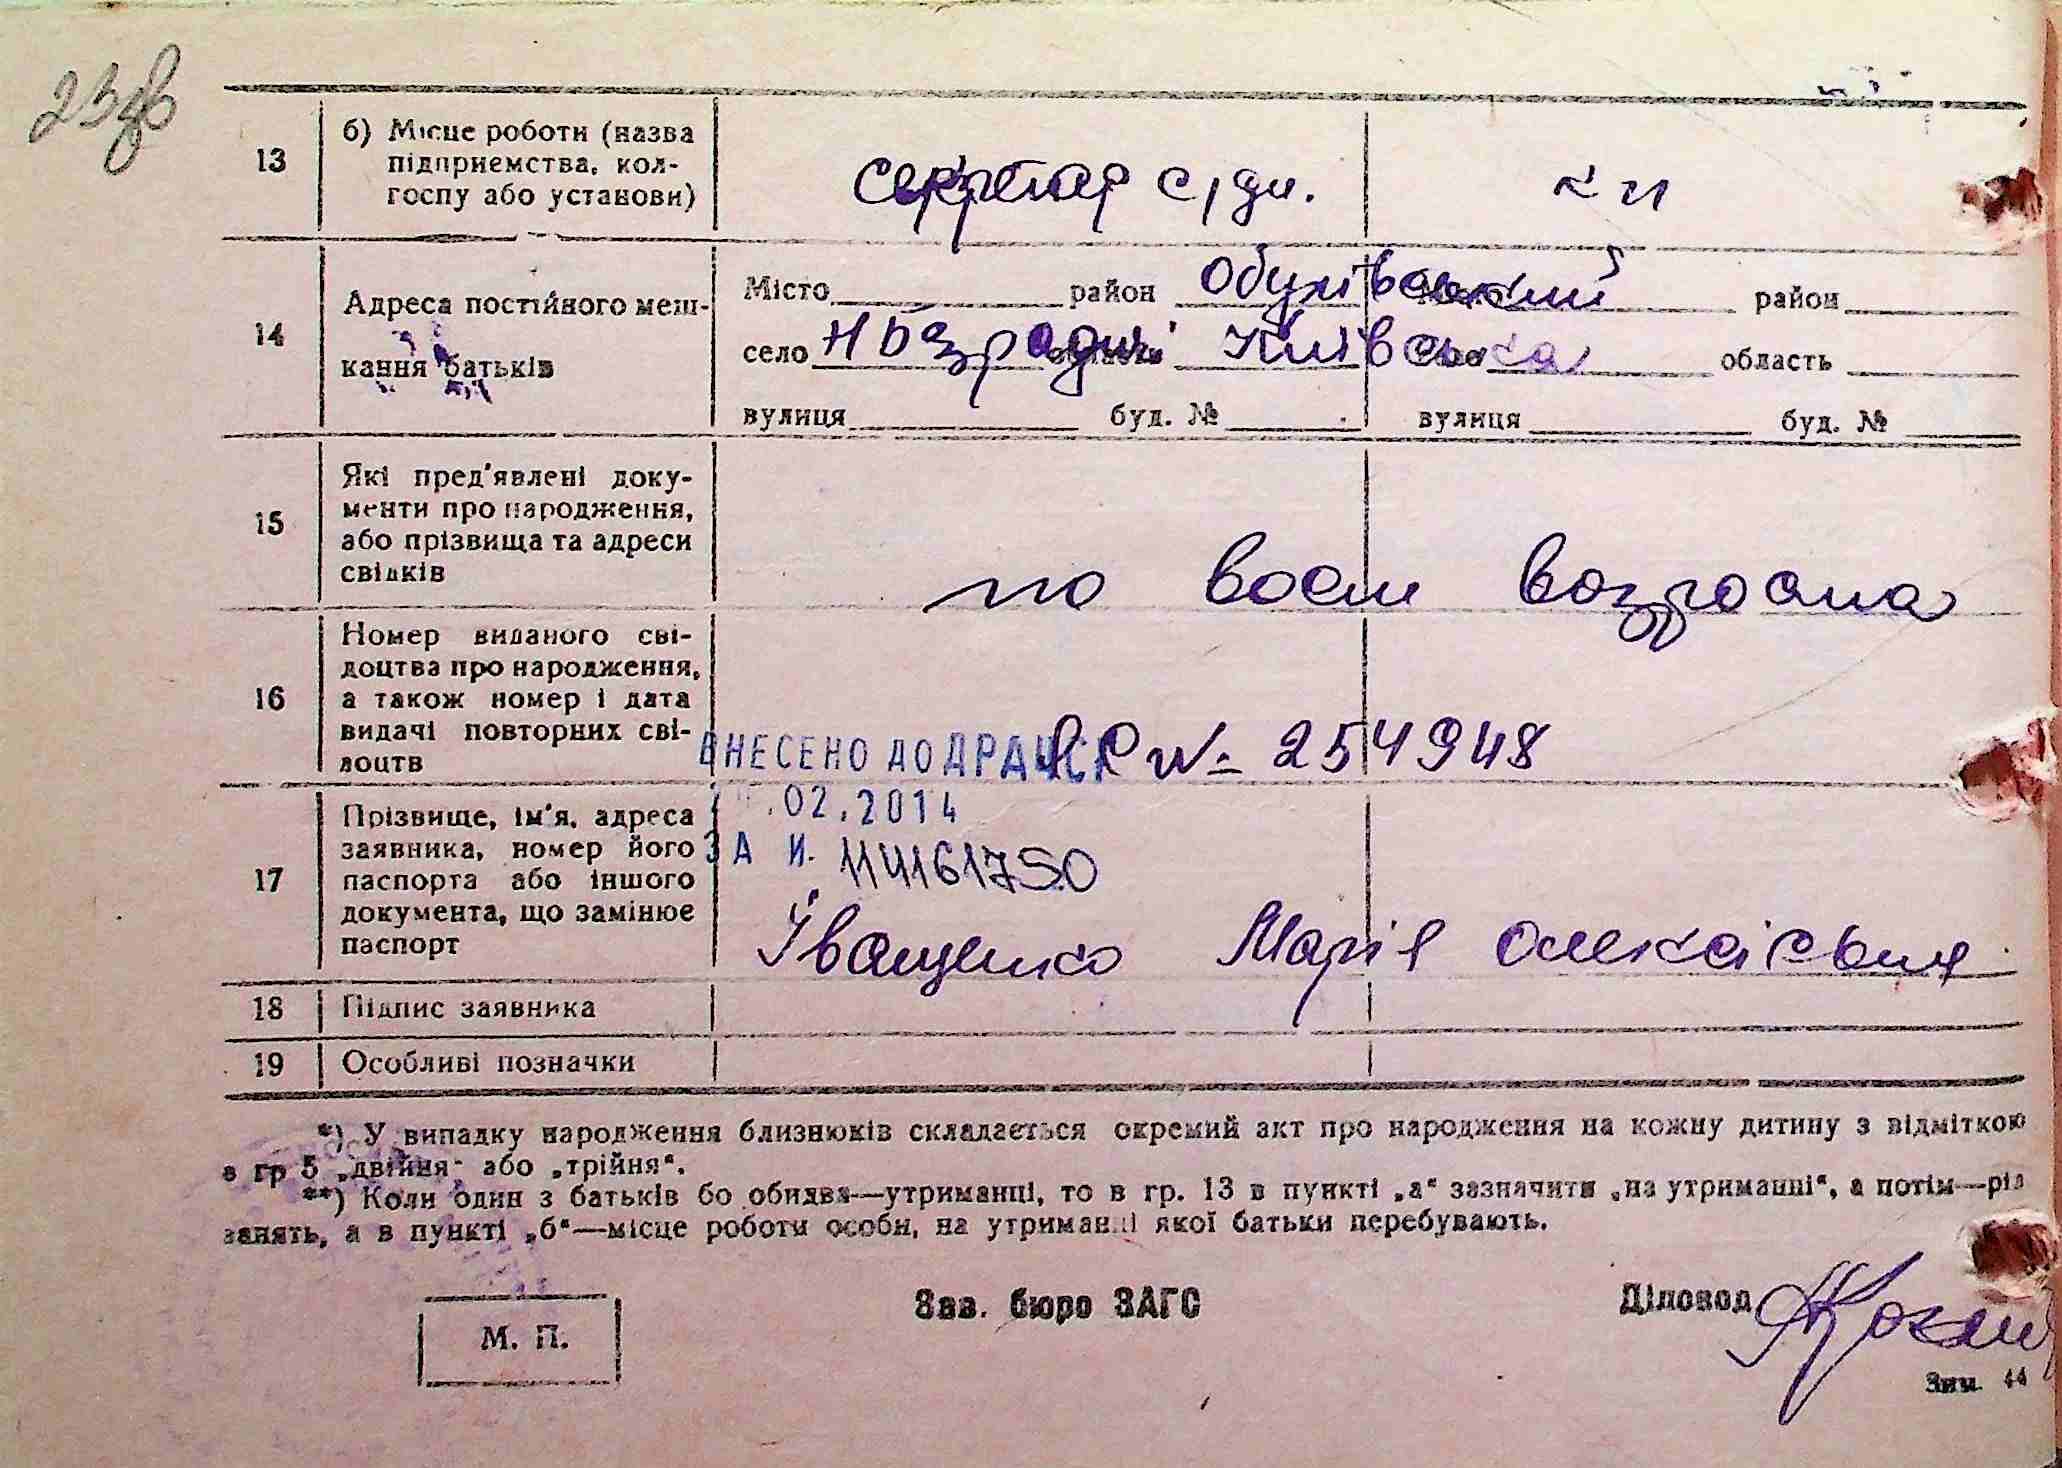 23зв
13
б) Місце роботи (назва
підприємства, кол-
госпу або установи)
секретар с/ди.
к п
14
Адреса постійного меш-
кання батьків
Місто район Обухівський Місто район
село Н Безрадичі область Київська село область
вулиця буд. № вулиця буд. №
15
Які пред'явлені доку-
менти про народження,
або прізвища та адреси
свідків
по восем возраста
16
Номер виданого сві-
доцтва про народження,
а також номер і дата
видачі повторних сві-
доцтв
ВНЕСЕНО ДО ДРАЦСГ
№ 254948
.02.2014
ЗА И. 114161750
17
Прізвище, ім'я, адреса
заявника, номер його
паспорта або іншого
документа, що замінює
паспорт
Іващенко Марія Олексієвня
18 Підпис заявника
19 Особливі позначки
*) У випадку народження близнюків складається окремий акт про народження на кожну дитину з відміткою
в гр 5 „двійня" або „трійня".
**) Коли один з батьків бо обидва—утриманці, то в гр. 13 в пункті „а" зазначити „на утриманні", а потім—рід
занять, а в пункті „б"—місце роботи особи, на утриманні якої батьки перебувають.
М. П.
Зав. бюро ЗАГС
Діловод
Зим. 44